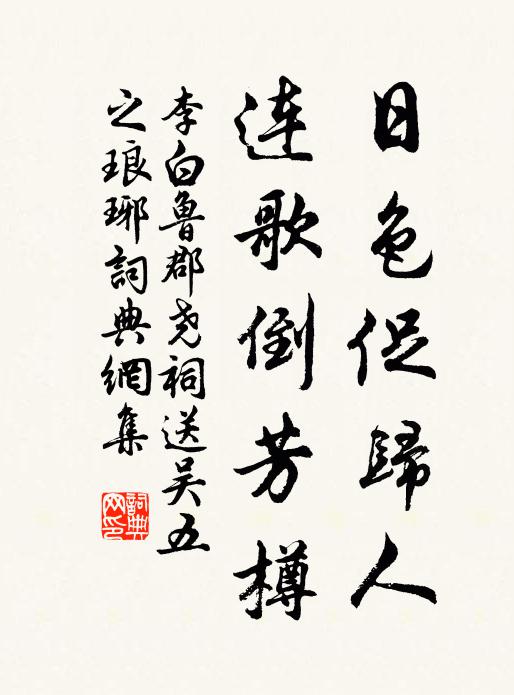 日色促歸人
連歌倒芳樽
李白魯郡尧祠送吴五
之琅琊詞典網集
詞典网印